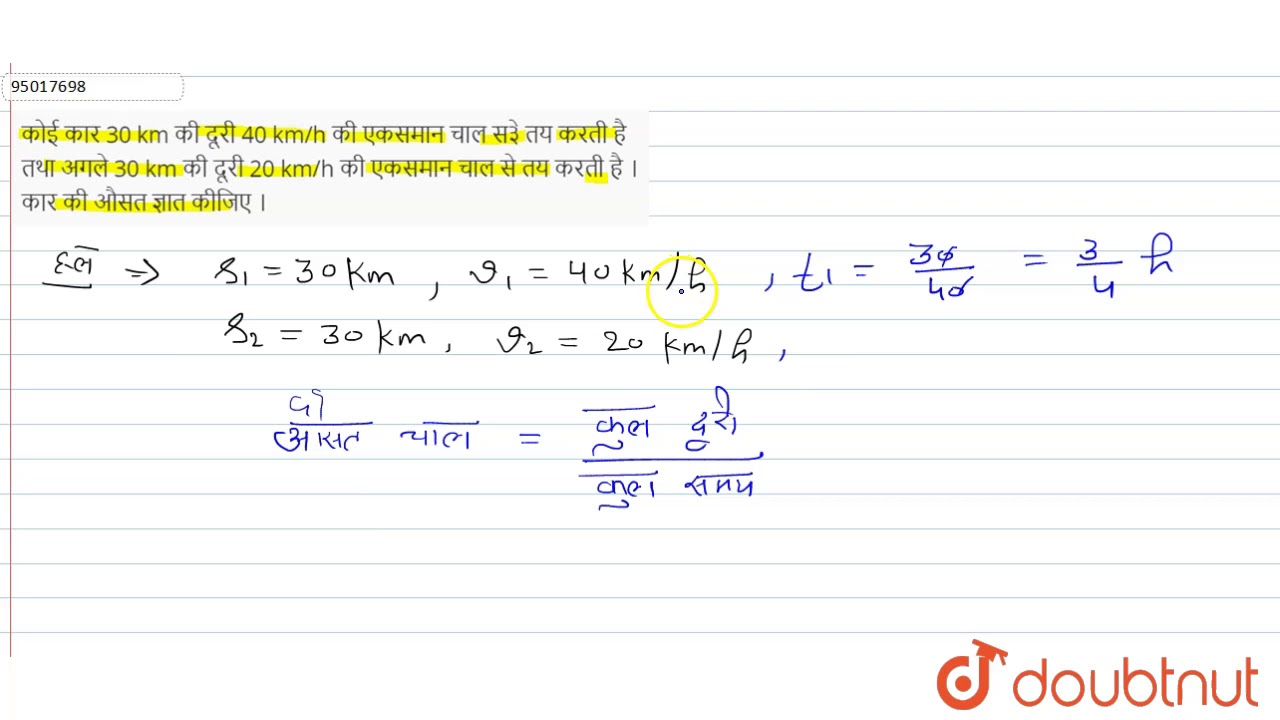 95017698
कोई कार 30 km की दूरी 40 km/h की एकसमान चाल सरे तय करती है
तथा अगले 30 km की दूरी 20 km/h की एकसमान चाल से तय करती है ।
कार की औसत ज्ञात कीजिए ।
हल => s₁ = 30 km , v₁ = 40 km/h , t₁ = 30/40 = 3/4 h
s₂ = 30 km , v₂ = 20 km/h ,
औसत चाल = कुल दूरी / कुल समय
doubtnut